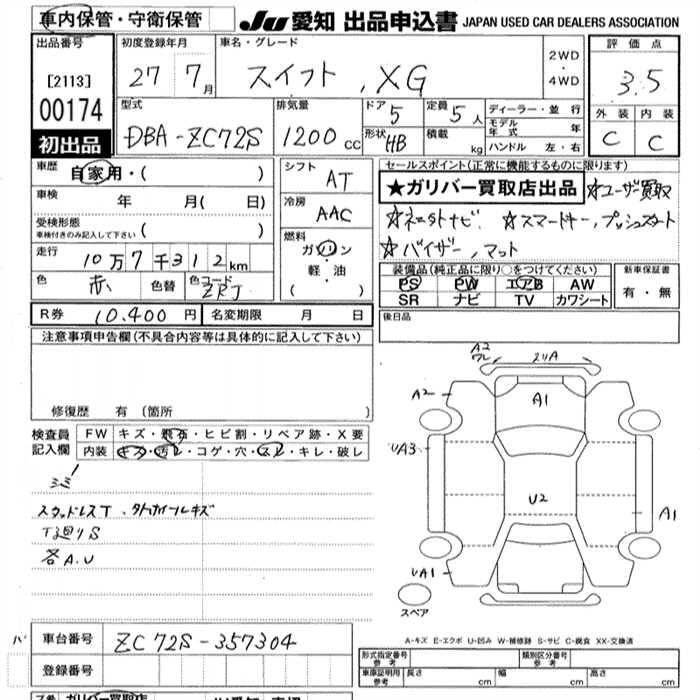 車内保管・守衛保管
JU 愛知 出品申込書 JAPAN USED CAR DEALERS ASSOCIATION
出品番号 初度登録年月 車名・グレード 評価点
[2113] 27 7月 スイフト, XG 2WD・4WD 3.5
00174 型式 排気量 ドア 5 定員 5人 ディーラー・並行 外装 内装
DBA-ZC72S 1200cc 形状 HB 積載 kg モデル年式 年 C C
初出品 ハンドル 左・右
車歴 自家用・( ) シフト AT セールスポイント(正常に機能するものに限ります)
車検 年 月(日) 冷房 AAC ★ガリバー買取店出品 ☆ユーザー買取
受検形態 ( )
車検付きのみ記入して下さい
☆スマートキー, プッシュスタート
走行 10万7千312km 燃料 ガソリン・軽・油 ( ) ☆バイザー, マット
色 赤 色替 色コード ZRJ 装備品(純正品に限り○をつけてください) 新車保証書
PS PW エアB AW 有・無
SR ナビ TV カワシート
R券 10.400円 名変期限 月 日 後日品
注意事項申告欄(不具合内容等は具体的に記入して下さい)
修復歴 有(箇所 )
検査員記入欄 FW キズ・飛石・ヒビ割・リペア跡・X要
内装 キズ・汚レ・コゲ・穴・スレ・キレ・破レ
スタッドレスT
T廻りS
各A.U
A2 A1
A2
UA3
U2 A1
UA1
スペア
A-キズ E-エクボ U-凹み W-補修跡 S-サビ C-腐食 XX-交換済
車台番号 ZC72S-357304
登録番号
形式指定番号 参考 類別区分番号 参考
車庫証明用 参考 長さ cm 幅 cm 高さ cm
ガリバー買取店